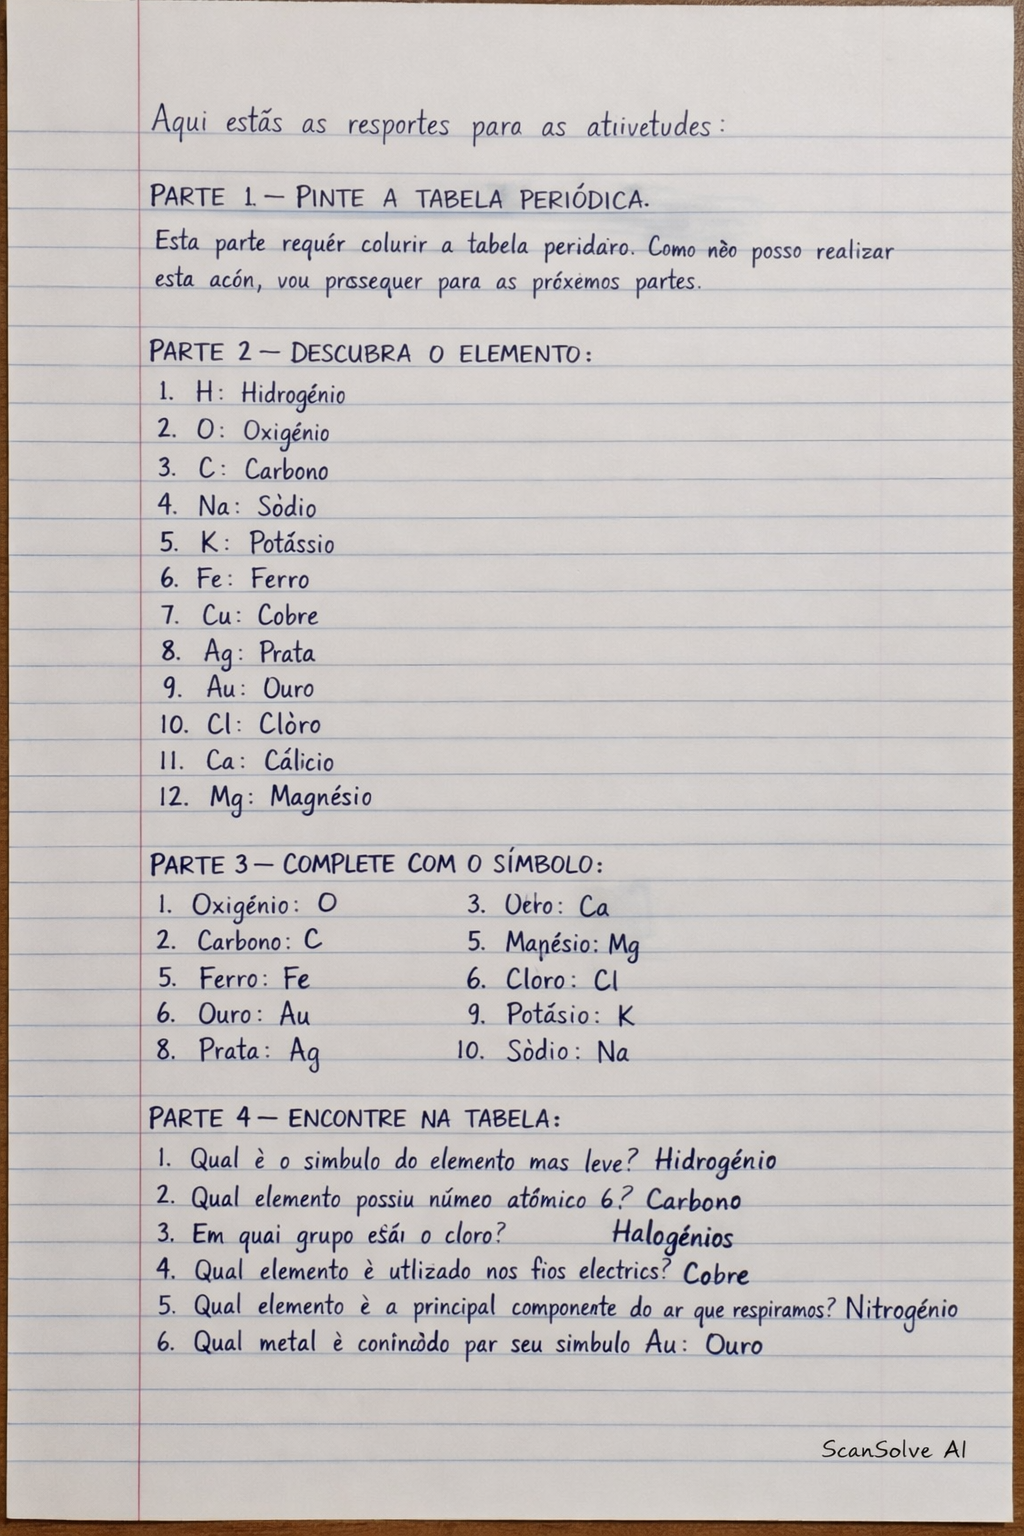 Aqui estãs as resportes para as atiivetudes:
PARTE 1. — PINTE A TABELA PERIÓDICA.
Esta parte requér colurir a tabela peridaro. Como nèo posso realizar
esta acón, vou prossequer para as próxemos partes.
PARTE 2 — DESCUBRA O ELEMENTO:
1. H: Hidrogénio
2. O: Oxigénio
3. C: Carbono
4. Na: Sòdio
5. K: Potássio
6. Fe: Ferro
7. Cu: Cobre
8. Ag: Prata
9. Au: Ouro
10. Cl: Clòro
11. Ca: Cálicio
12. Mg: Magnésio
PARTE 3 — COMPLETE COM O SÍMBOLO:
1. Oxigénio: O 3. Ca
2. Carbono: C 5. Mapésio: Mg
5. Ferro: Fe 6. Cloro: Cl
6. Ouro: Au 9. Potásio: K
8. Prata: Ag 10. Sòdio: Na
PARTE 4 — ENCONTRE NA TABELA:
1. Qual è o simbulo do elemento mas leve? Hidrogénio
2. Qual elemento possiu númeo atómico 6? Carbono
3. Em quai grupo o cloro? Halogénios
4. Qual elemento è utlizado nos fios electrics? Cobre
5. Qual elemento è a principal componente do ar que respiramos? Nitrogénio
6. Qual metal è par seu simbulo Au: Ouro
ScanSolve AI